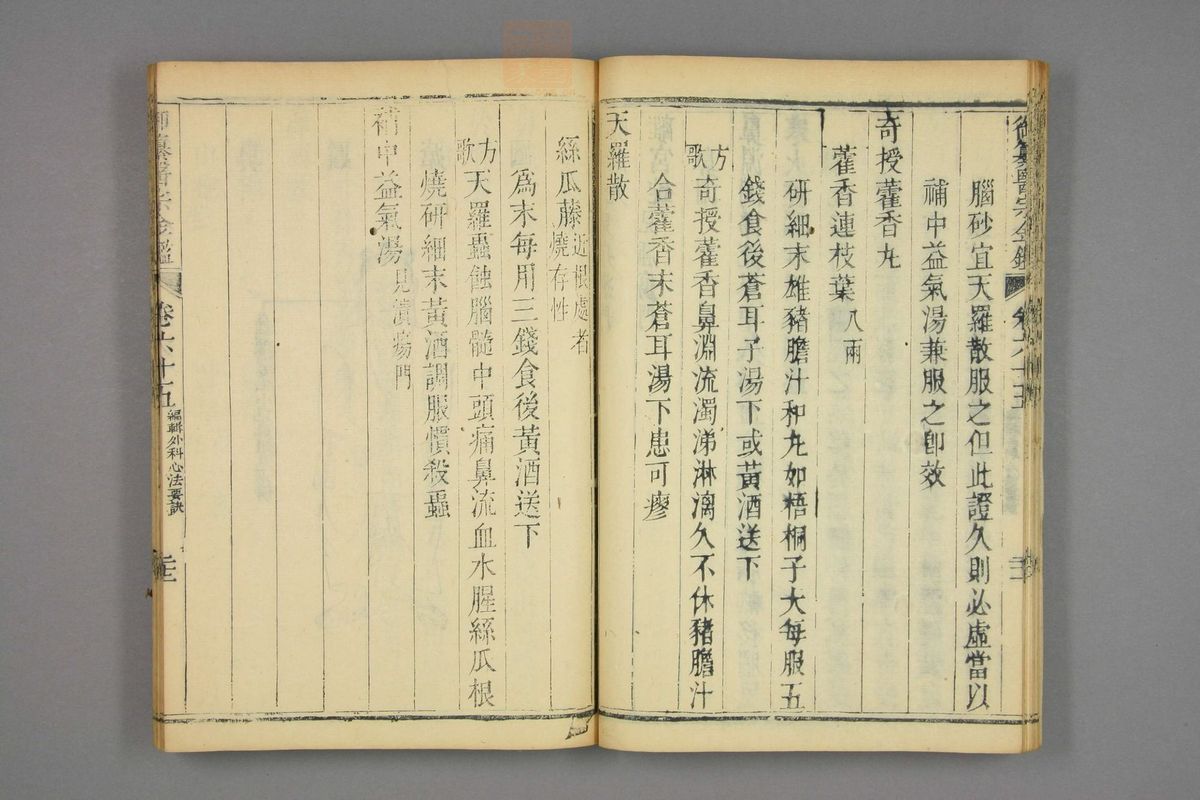 御纂醫宗金鑑 卷六十五
腦砂宜天羅散服之但此證久則必虛當以
補中益氣湯兼服之卽效
奇授藿香丸
藿香連枝葉八兩
研細末雄豬膽汁和丸如梧桐子大每服五
錢食後蒼耳子湯下或黃酒送下
方歌 奇授藿香鼻淵流濁涕淋漓久不休豬膽汁
合藿香末蒼耳湯下患可瘳
天羅散
絲瓜藤近根處者燒存性
爲末每用三錢食後黃酒送下
方歌 天羅蟲蝕腦髓中頭痛鼻流血水腥絲瓜根
燒研細末黃酒調服慣殺蟲
補中益氣湯見潰瘍門
御纂醫宗金鑑 卷六十五 編輯外科心法要訣